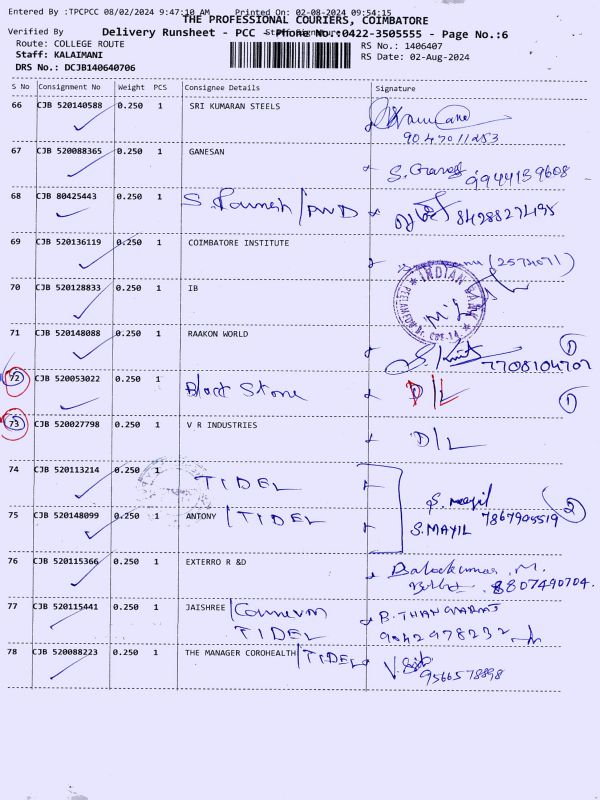 Entered By :TPCPCC 08/02/2024 9:47:10 AM Printed On: 02-08-2024 09:54:15
THE PROFESSIONAL COURIERS, COIMBATORE
Verified By
Delivery Runsheet - PCC - Phone No.:0422-3505555 - Page No.:6
Route: COLLEGE ROUTE
RS No.: 1406407
Staff: KALAIMANI
RS Date: 02-Aug-2024
DRS No.: DCJB140640706
S No Consignment No Weight PCS Consignee Details Signature
66 CJB 520140588 0.250 1 SRI KUMARAN STEELS
9047011253
67 CJB 520088365 0.250 1 GANESAN
9944159608
68 CJB 80425443 0.250 1
8428827495
69 CJB 520136119 0.250 1 COIMBATORE INSTITUTE
(2574071)
70 CJB 520128833 0.250 1 IB
INDIAN BANK
71 CJB 520148088 0.250 1 RAAKON WORLD
7708104707 1
72 CJB 520053022 0.250 1 Black Stone D/L 1
73 CJB 520027798 0.250 1 V R INDUSTRIES D/L
74 CJB 520113214 0.250 1 TIDEL
7867905519 2
75 CJB 520148099 0.250 1 ANTONY / TIDEL S.MAYIL
76 CJB 520115366 0.250 1 EXTERRO R &D Balakumar. M.
8807490704.
77 CJB 520115441 0.250 1 JAISHREE /
TIDEL 9042978232
78 CJB 520088223 0.250 1 THE MANAGER COROHEALTH / TIDEL
9566578898